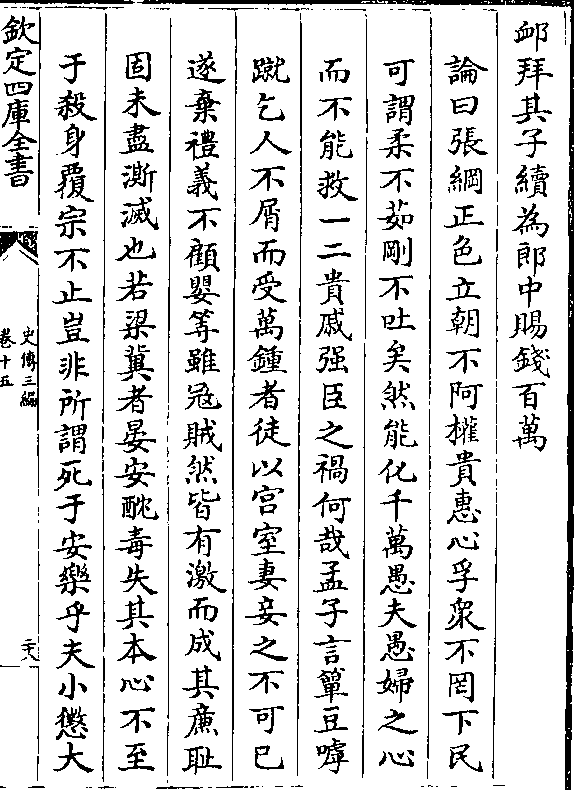 衈拜其子續為郎中賜錢百萬
論曰張綱正色立朝不阿權貴惠心孚衆不罔下民
可謂柔不茹剛不吐矣然能化千萬愚夫愚婦之心
而不能救一二貴戚强臣之禍何哉孟子言簞豆嘑
蹴乞人不屑而受萬鍾者徒以宫室妻妾之不可已
遂棄禮義不顧嬰等雖冦賊然皆有激而成其亷耻
固未盡澌滅也若梁冀者晏安酖毒失其本心不至
于殺身覆宗不止豈非所謂死于安樂乎夫小懲大
欽定四庫全書
史傳三編
卷十五
二十八